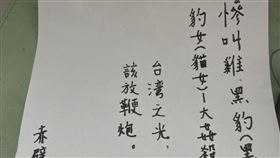 慘叫雞．黑豹(黑
豹女(貓女)－大姦殺
台灣之光．
該放鞭炮。
赤壁